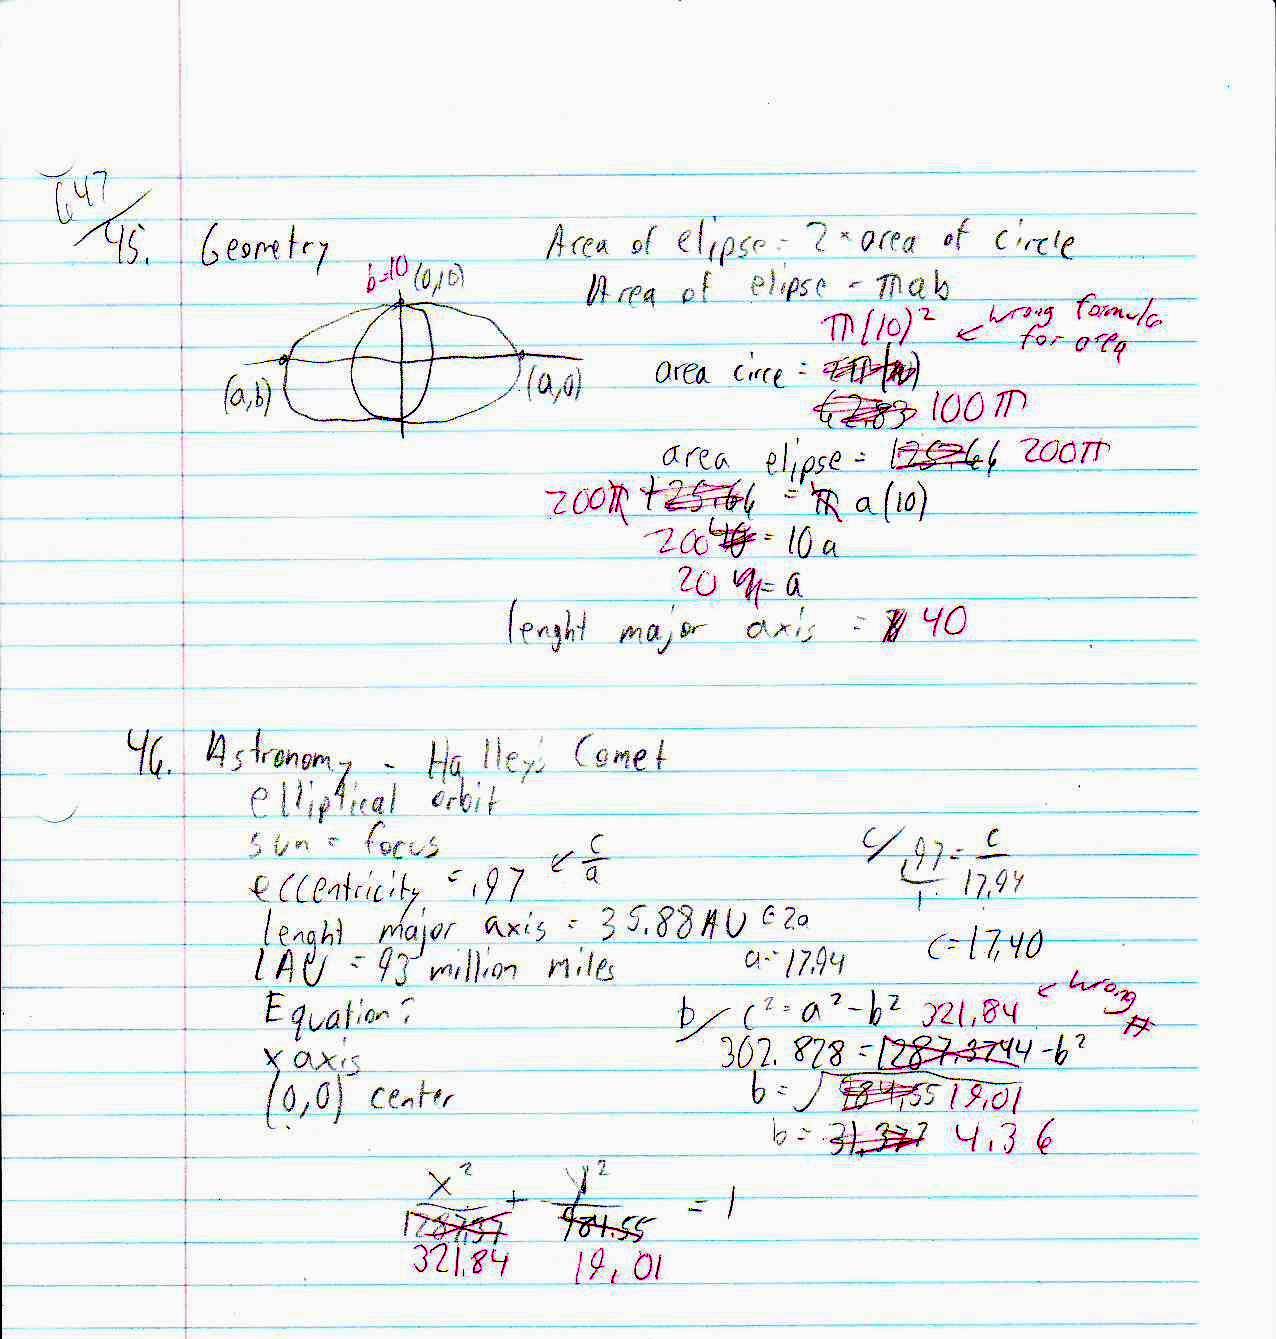 647
45. Geometry
Area of elipse = 2 * area of circle
b=10 (0,10)
Area of elipse = πab
π(10)² ← wrong formula for area
area circe =
(a,b)
(a,0)
62.83 100π
area elipse = 125.66 200π
200π 125.66 = π a(10)
200 40 = 10a
20 4 = a
lenght major axis = 40
46. Astronomy - Halley's Comet
elliptical orbit
sun = focus
eccentricity = .97 ← c/a
c/ .97/1 = c/17.94
lenght major axis = 35.88 AU ← 2a
c=17.40
1AU = 93 million miles
a=17.94
Equation?
b/ c² = a² - b² 321.84 ← wrong #
x axis
302.828 = 1287.3744 - b²
(0,0) center
b = √984.55 19.01
b = 31.377 4.36
x²/1287.37 + y²/984.55 = 1
321.84 19.01